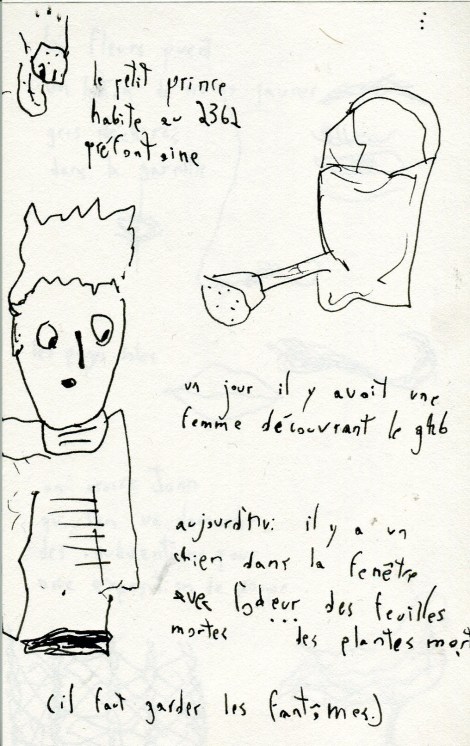 le petit prince
habite au 2362
préfontaine
un jour il y avait une
femme découvrant le ghb
aujourd'hui il y a un
chien dans la fenêtre
avec lodeur des feuilles
mortes ... des plantes mort
(il faut garder les fantômes.)